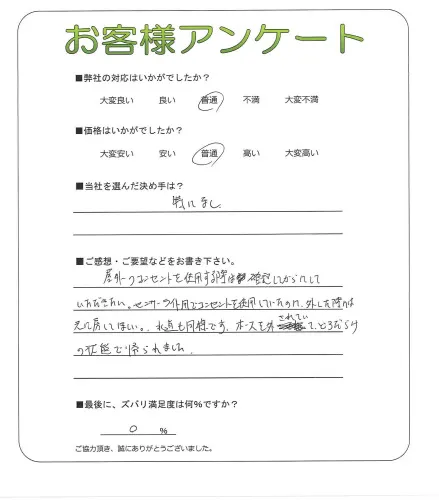 お客様アンケート
■弊社の対応はいかがでしたか？
大変良い 良い 普通 不満 大変不満
■価格はいかがでしたか？
大変安い 安い 普通 高い 大変高い
■当社を選んだ決め手は？
特になし
■ご感想・ご要望などをお書き下さい。
屋外のコンセントを使用する際は確認してからにして
いただきたい。センサーライト用でコンセントを使用していたので、外した際は
元に戻してほしい。水道も同様です。ホースを外されていて、どろだらけ
の状態で帰られました。
■最後に、ズバリ満足度は何％ですか？
0 %
ご協力頂き、誠にありがとうございました。